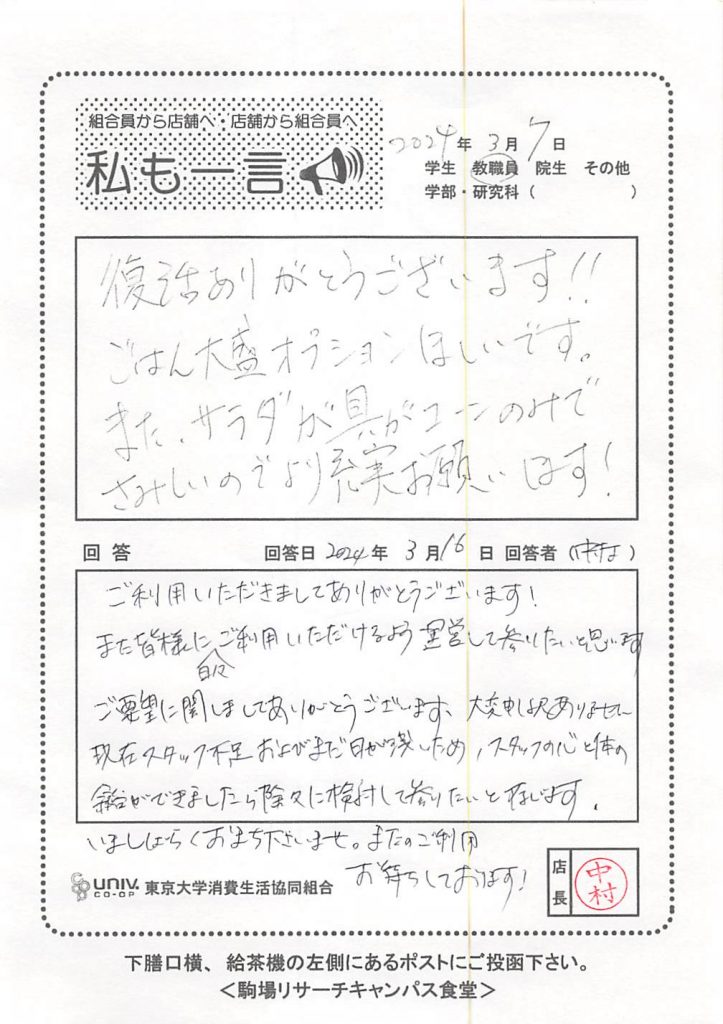 組合員から店舗へ・店舗から組合員へ
私も一言
2024年 3月 7日
学生 教職員 院生 その他
学部・研究科 ( )
復活ありがとうございます!!
ごはん大盛オプションほしいです。
また、サラダが具がコーンのみで
さみしいのでより充実お願いします!
回答 回答日 2024年 3月 16日 回答者 (中村)
ご利用いただきましてありがとうございます!
また皆様に日々ご利用いただけるよう運営して参りたいと思います
ご要望に関しましてありがとうございます、大変申し訳ありません
現在スタッフ不足およびまだ日が浅いため、スタッフの心と体の
余裕ができましたら除々に検討して参りたいと存じます。
いましばらくおまち下さいませ。またのご利用
お待ちしております!
UNIV. CO-OP 東京大学消費生活協同組合
店長 中村
下膳口横、給茶機の左側にあるポストにご投函下さい。
<駒場リサーチキャンパス食堂>